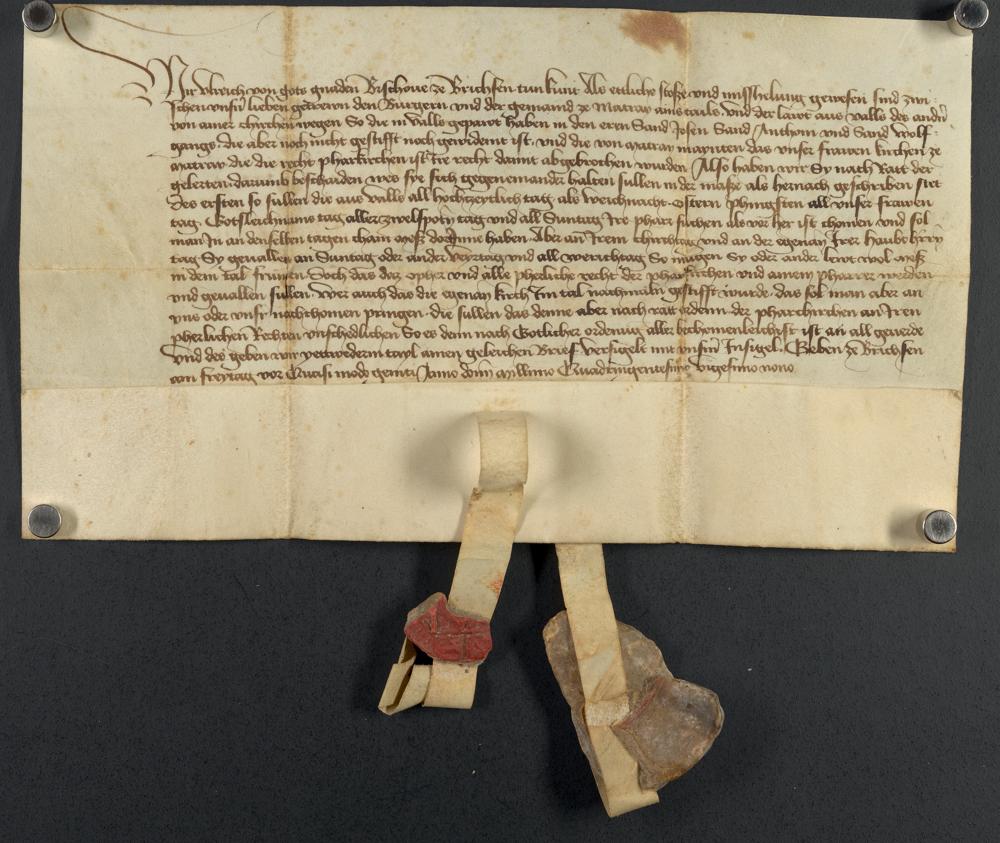 Wir Vlreich von gots gnaden Bischoue ze Brichsen tun kunt Als etliche stosze vnd misshelung gewesen sind zwi-
schen vnsn̄ lieben getrewen den Burgern vnd der gemaind ze Matraw ains tails. Vnd der läwt aus Valls des andn̄
von ainer chirchen wegen So die in Valls gepawt haben in den eren Sand Josen Sand Anthoni vnd Sand Wolf-
gangs. die aber noch nicht gestifft noch gewidemt ist. vnd die von Matraw maynten das vnser frawen kirchen ze
Matraw die die recht pharkirchen ist Ire recht damit abgebrochen wurden Also haben wir Sy nach Ratt der
gelerten darumb beschaiden wes sy sich gegeneinander halten sullen in der masze als hernach geschriben stet
Des ersten so sullen die aus Valls all hochzeytlich tag als Weichnacht. Ostern Phingsten all vnser frawen
tag. Gotsleichnams tag aller zwelfpotn̄ tag vnd all Suntag Ire pharr suchen als von her ist chomen vnd sol
man In an denselben tagen chain Mess dortInne haben. Aber an Irem chirchtag vnd an der egenan̄ Irer haubthērn
tag. Sy geuallen an Suntag oder ander veyrtag vnd all werichtag So mugen Sy oder ander lewt wol Mess
in dem tal frumen. Doch das daz opher vnd alle pherliche recht der pharrkirchen vnd ainem pharrer werden
vnd geuallen sullen. Wer auch das die egenan̄ kirch Im tal nachmaln gestifft wurde. das sol man aber an
vns oder vnsr̄ nachkomen pringen. die sullen das denne aber nach ratt ordenn der pharrchirchen an Iren
pherlichen Rechten vnschedlichen So es denn nach Gotlicher ordenung aller bechomenleichist ist an all geuerde
Vnd des geben wir yettwederm tayl ainen geleichen Brief versigelt mit vnserm̄ Insigel. Geben ze Brichsen
am freytag vor Quasi modo geniti Anno domi Millimo Quadringentesimo vigesimo nono